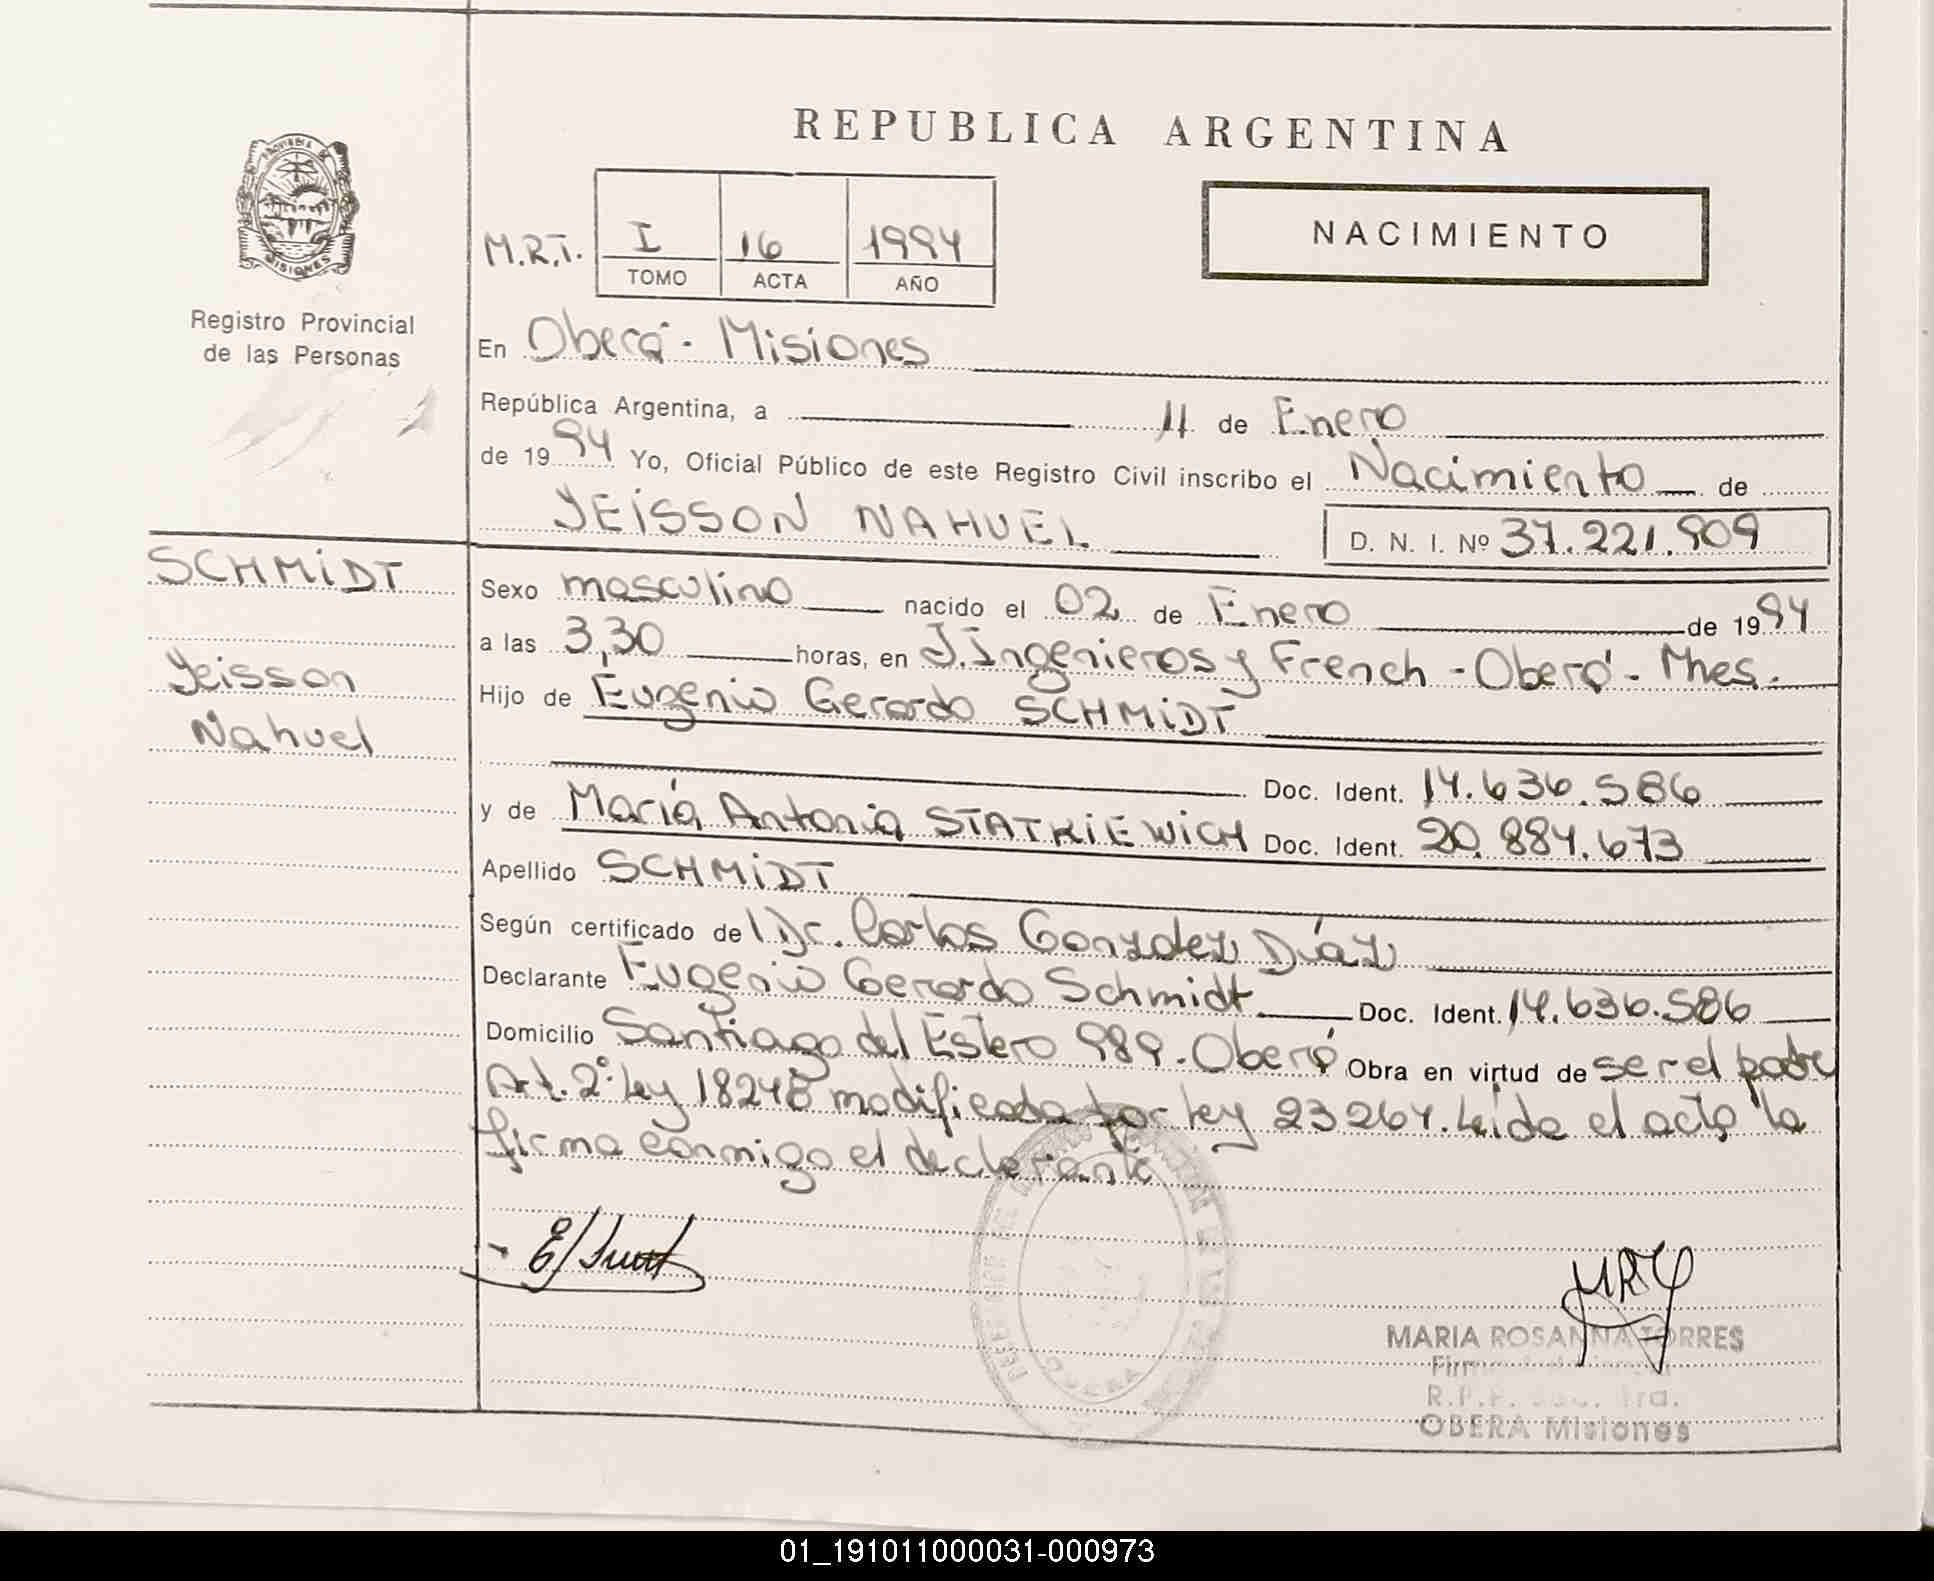 REPUBLICA ARGENTINA
PROVINCIA DE
MISIONES
Registro Provincial
de las Personas
M.R.T.
I
TOMO
16
ACTA
1994
AÑO
NACIMIENTO
En Oberá - Misiones
República Argentina, a 11 de Enero
de 1994 Yo, Oficial Público de este Registro Civil inscribo el Nacimiento de
YEISSON NAHUEL
D. N. I. Nº 37.221.909
SCHMIDT
Yeisson
Nahuel
Sexo masculino nacido el 02 de Enero de 1994
a las 3,30 horas, en J. Ingenieros y French - Oberá - Mnes.
Hijo de Eugenio Gerardo SCHMIDT
Doc. Ident. 14.636.586
y de María Antonia STATKIEWICH Doc. Ident. 20.884.673
Apellido SCHMIDT
Según certificado de Dr. Carlos Gonzalez Díaz
Declarante Eugenio Gerardo Schmidt Doc. Ident. 14.636.586
Domicilio Santiago del Estero 989 - Oberá Obra en virtud de ser el padre
Art. 2º Ley 18248 modificada por ley 23264. Leida el acta la
firma conmigo el declarante
MARIA ROSANNA TORRES
R.P.P.
OBERA Misiones
OBERA
01_191011000031-000973